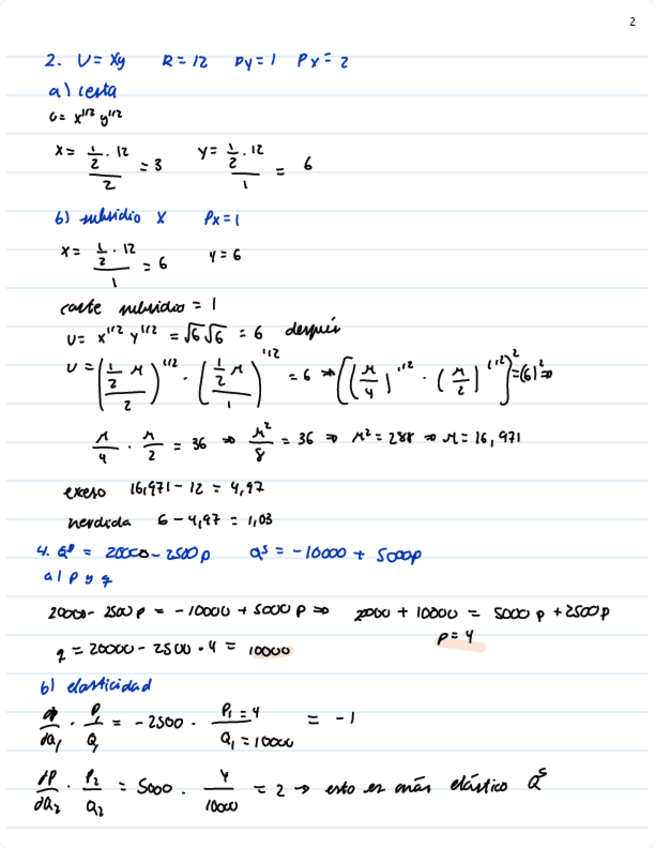 2
2. U = Xy R = 12 Py = 1 Px = 2
a) cesta
U = x^{1/2} y^{1/2}
x = (1/2 · 12)/2 = 3 y = (1/2 · 12)/1 = 6
b) subsidio X Px = 1
x = (1/2 · 12)/1 = 6 y = 6
coste subsidio = 1
U = x^{1/2} y^{1/2} = √6 √6 = 6 después
U = ((1/2 M)/2)^{1/2} · ((1/2 M)/1)^{1/2} = 6 ⇒ ((M/4)^{1/2} · (M/2)^{1/2})^2 = (6)^2 ⇒
M/4 · M/2 = 36 ⇒ M^2/8 = 36 ⇒ M^2 = 288 ⇒ M = 16,971
exceso 16,971 - 12 = 4,97
perdida 6 - 4,97 = 1,03
4. Q^D = 20000 - 2500p Q^S = -10000 + 5000p
a) p y q
20000 - 2500p = -10000 + 5000p ⇒ 20000 + 10000 = 5000p + 2500p
p = 4
q = 20000 - 2500 · 4 = 10000
b) elasticidad
dp/dQ1 · P1/Q1 = -2500 · P1 = 4/Q1 = 10000 = -1
dp/dQ2 · P2/Q2 = 5000 · 4/10000 = 2 → esto es más elástico Q^S